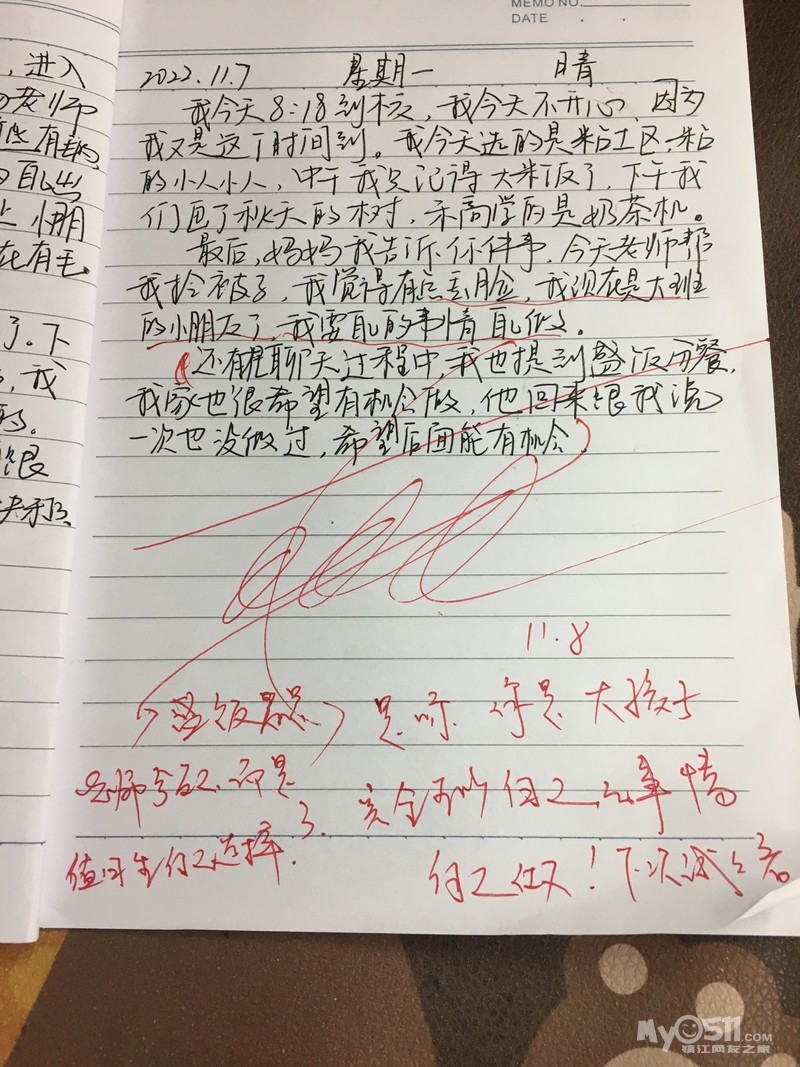 MEMO NO.
DATE . .
，进入
老师
有
小朋
在有毛。
了。下
，我
的。
2022.11.7 星期一 晴
我今天8:18到校，我今天不开心，因为
我又是这个时间到。我今天选的是粘土区，粘
的小人小人，中午我只记得大米饭了，下午我
们画了秋天的树，禾商学的是奶茶机。
最后，妈妈我告诉你件事，今天老师帮
我捡被子，我觉得有点丢脸，我现在是大班
的小朋友了，我要自己的事情自己做。
还有提聊天过程中，我也提到盛饭分餐，
我家也很希望有机会做，他回来跟我说
一次也没做过，希望后面能有机会。
11.8
是呀 你是大孩子
了。完全可以自己的事情
自己做！下次试试看
盛饭
老师 而是
值日生自己选择。
My0511.COM
镇江网友之家